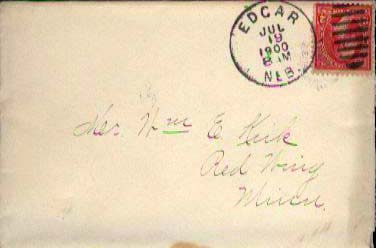 EDGAR
JUL
19
1900
8 AM
NEB.
Mrs. Wm E. Kirk
Red Wing
Minn.